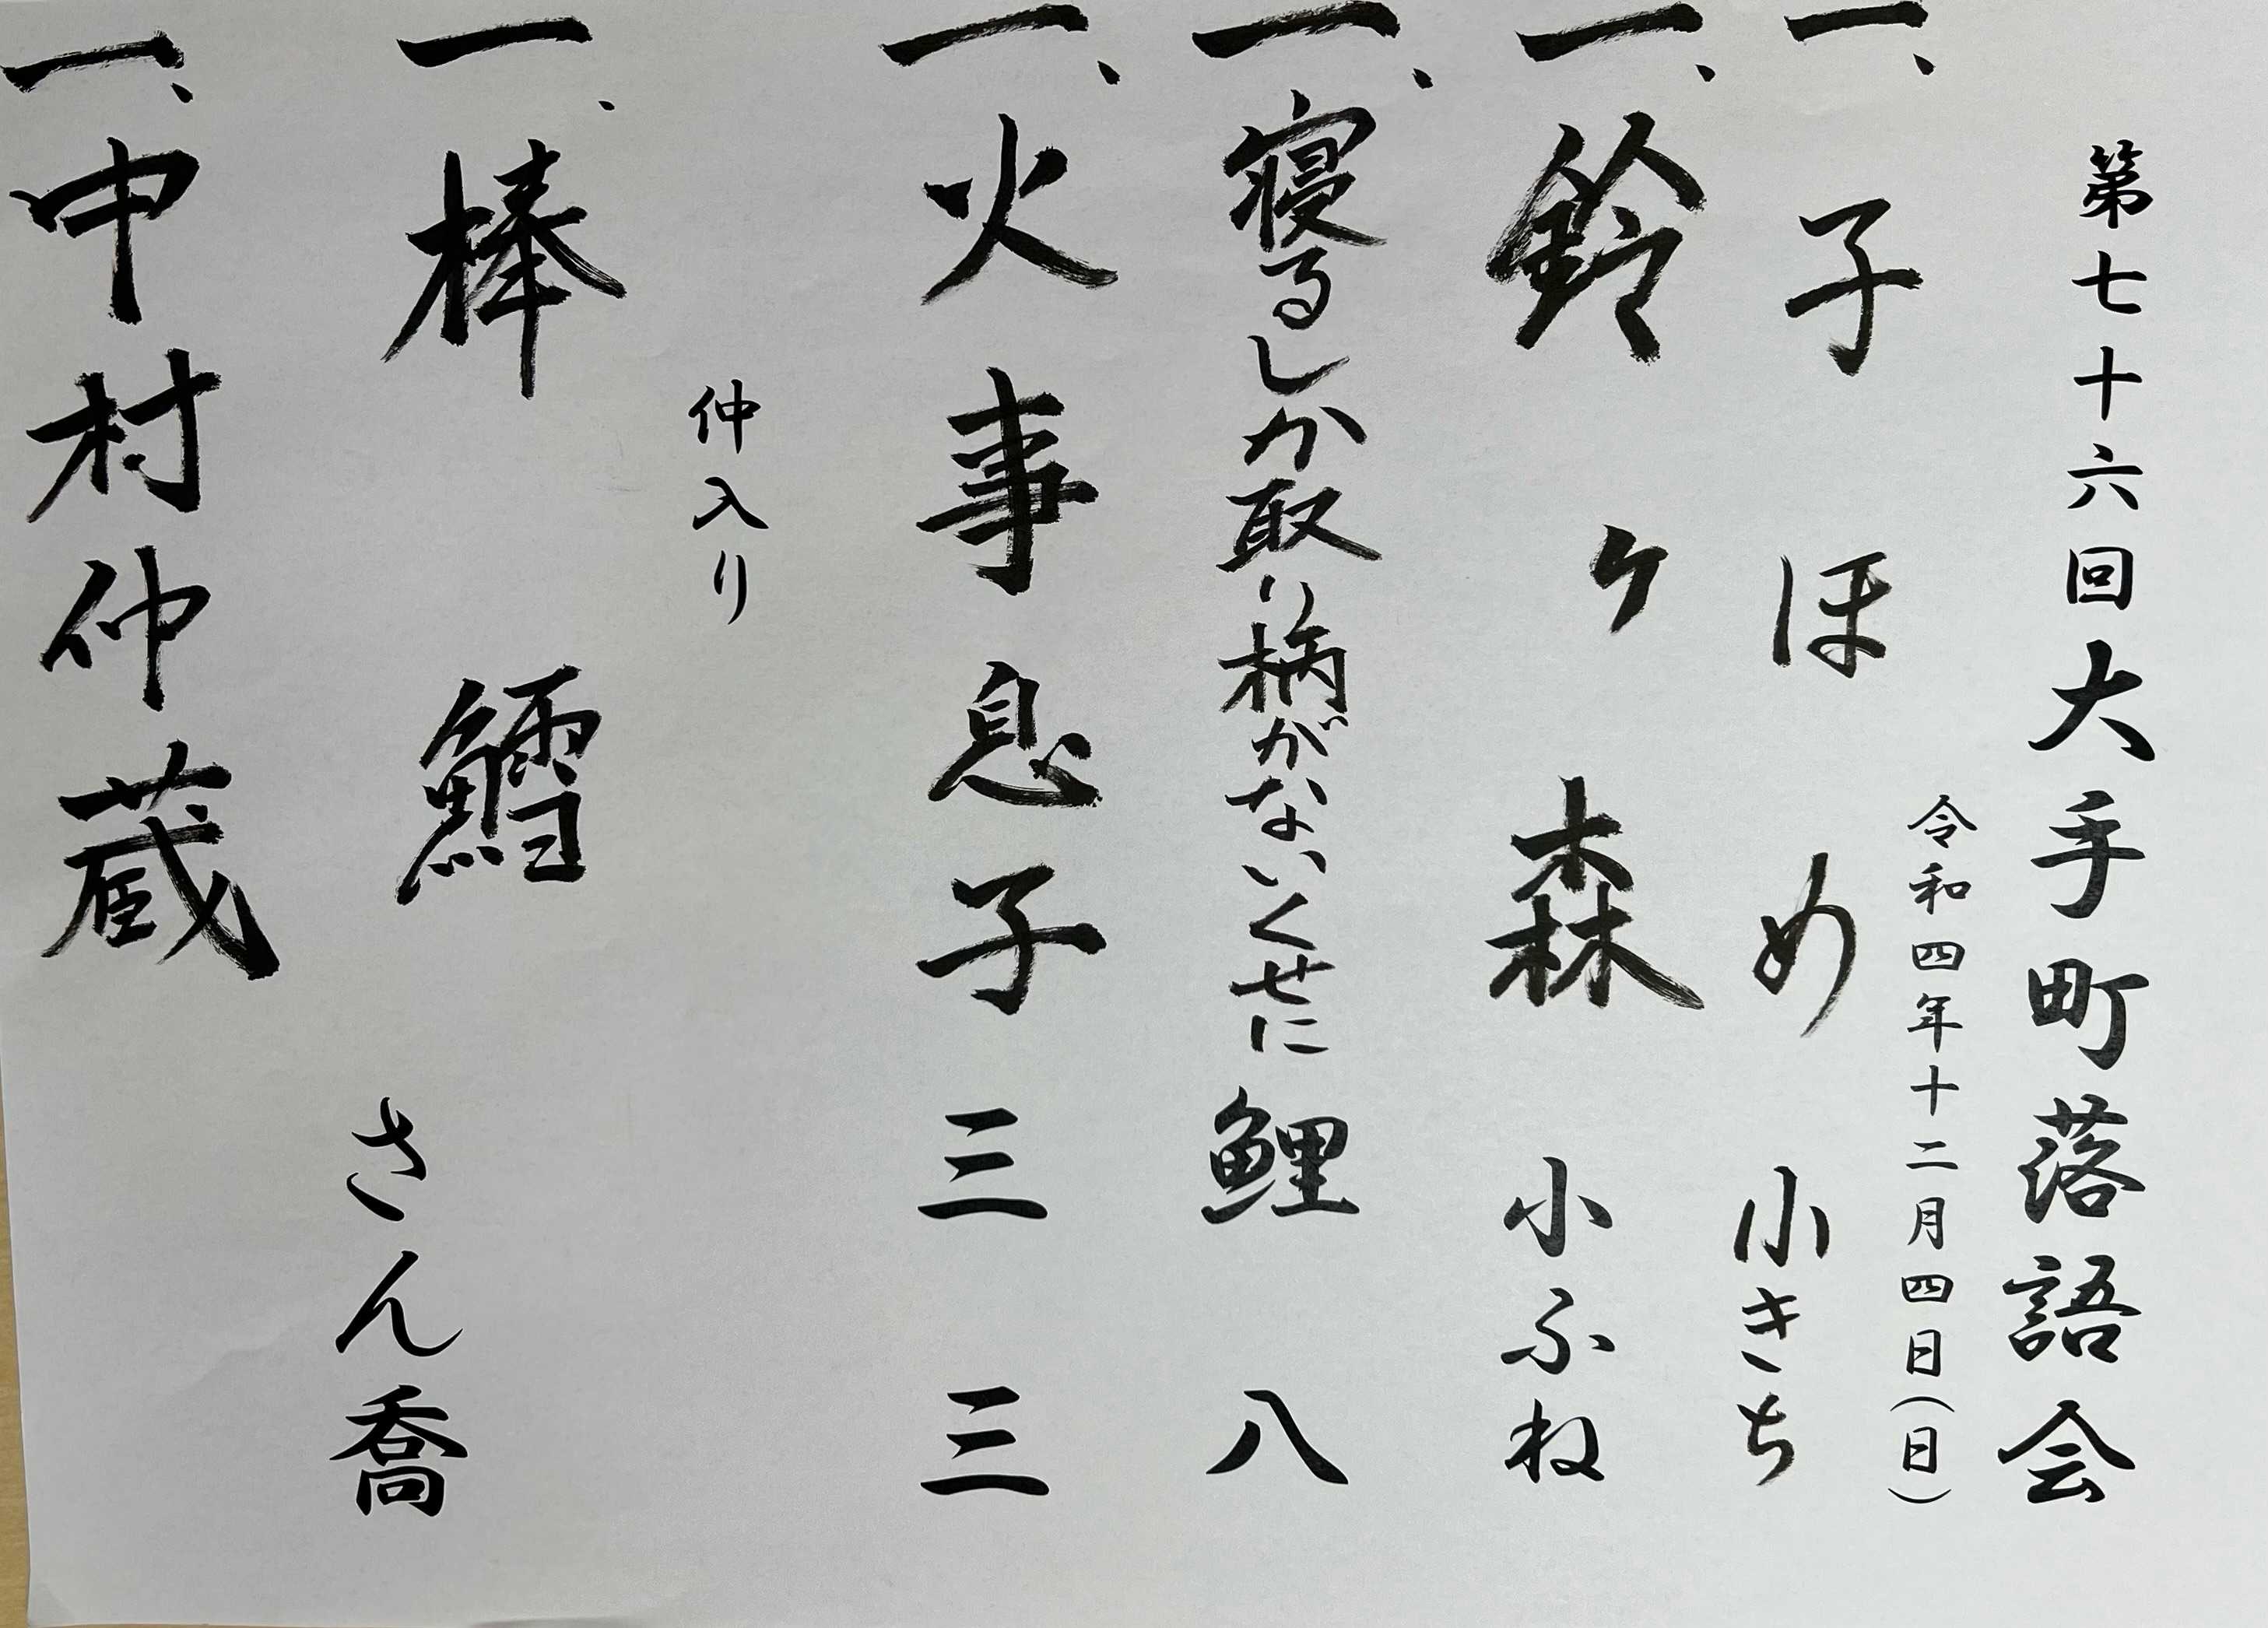 第七十六回大手町落語会
令和四年十二月四日(日)
一、子ほめ 小きち
一、鈴ヶ森 小ふね
一、寝るしか取り柄がないくせに 鯉八
一、火事息子 三三
仲入り
一、棒鱈 さん喬
一、中村仲蔵